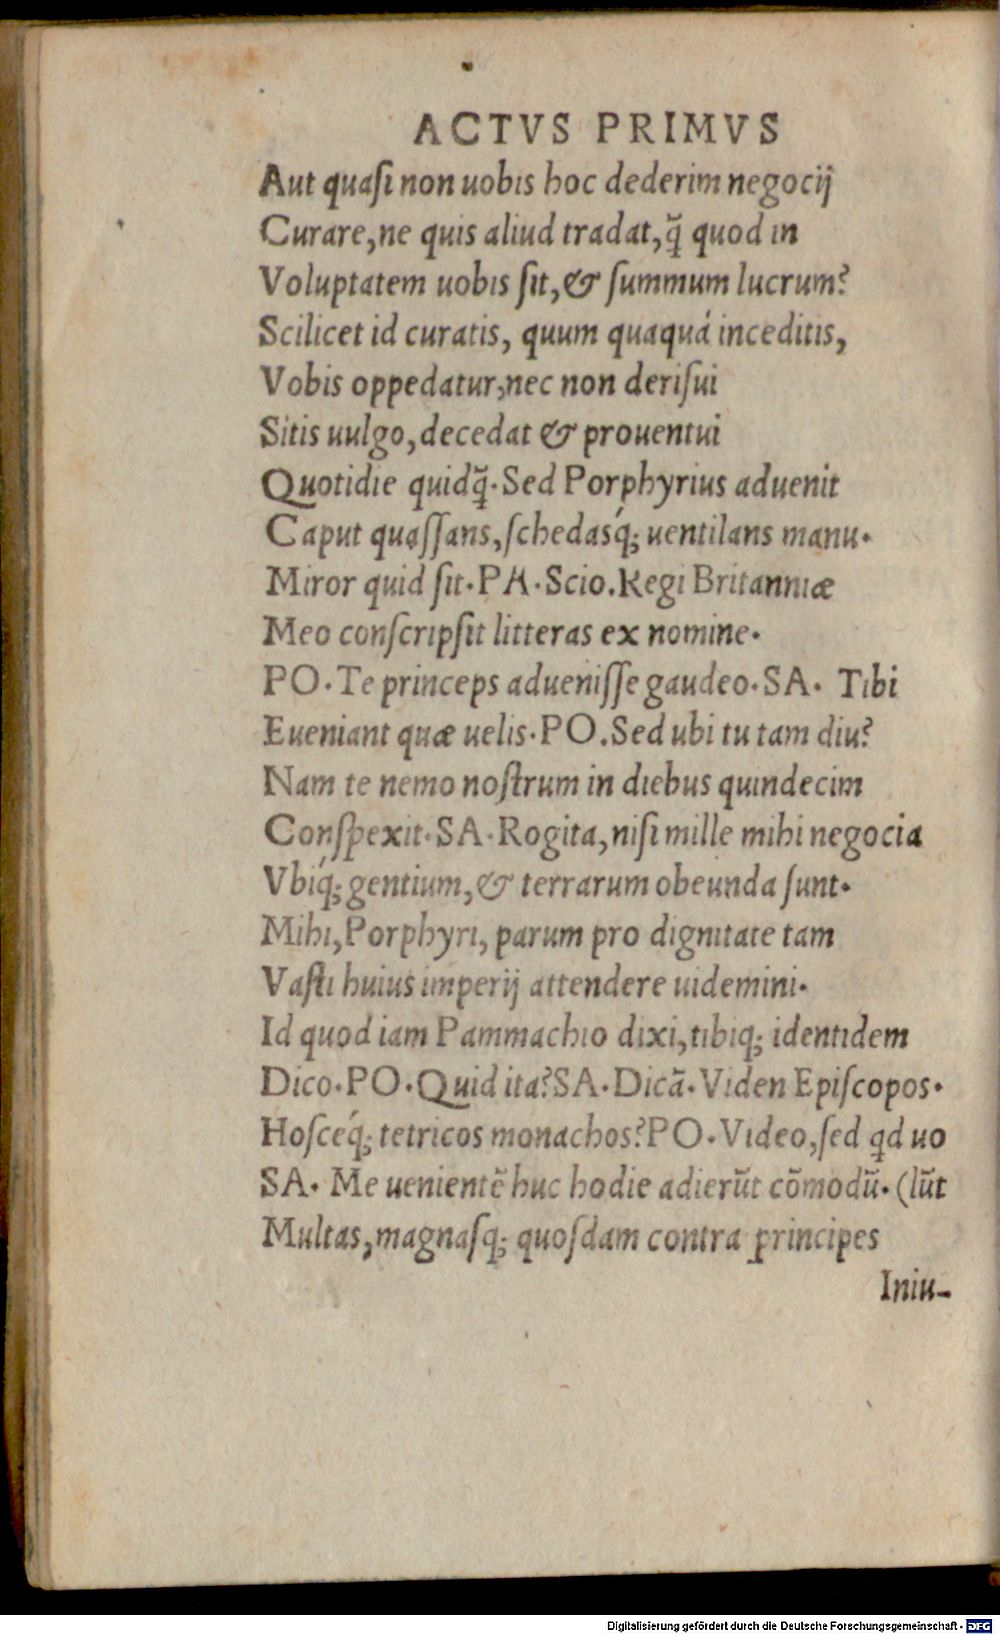 ACTVS PRIMVS
Aut quaſi non uobis hoc dederim negocij
Curare, ne quis aliud tradat, q̃ quod in
Voluptatem uobis ſit, & ſummum lucrum?
Scilicet id curatis, quum quaquá inceditis,
Vobis oppedatur, nec non deriſui
Sitis uulgo, decedat & prouentui
Quotidie quidq̃. Sed Porphyrius aduenit
Caput quaſſans, ſchedasq́; uentilans manu.
Miror quid ſit. PA. Scio. Regi Britanniæ
Meo conſcripſit litteras ex nomine.
PO. Te princeps adueniſſe gaudeo. SA. Tibi
Eueniant quæ uelis. PO. Sed ubi tu tam diu?
Nam te nemo noſtrum in diebus quindecim
Conſpexit. SA. Rogita, niſi mille mihi negocia
Vbiq́; gentium, & terrarum obeunda ſunt.
Mihi, Porphyri, parum pro dignitate tam
Vaſti huius imperij attendere uidemini.
Id quod iam Pammachio dixi, tibiq; identidem
Dico. PO. Quid ita? SA. Dicã. Viden Epiſcopos.
Hoſceq́; tetricos monachos? PO. Video, ſed qd uo
SA. Me uenientẽ huc hodie adierũt cõmodũ. (lũt
Multas, magnaſq; quoſdam contra principes
Iniu-
Digitalisierung gefördert durch die Deutsche Forschungsgemeinschaft - DFG